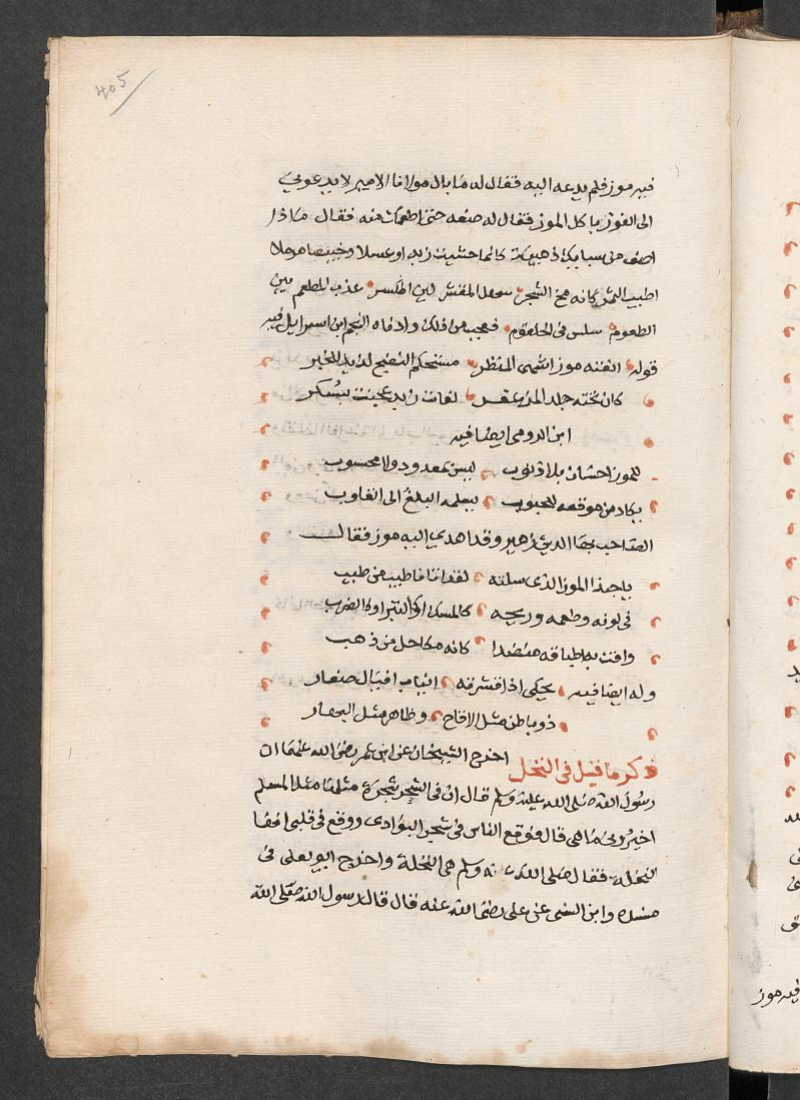 405
فيه موز فلم يدعه اليه فقال له ما بال مولانا الامير لا يدعوني
الى الفوز باكل الموز فقال له صفه حتى اطعمك منه فقال ماذا
اصف من سبايك ذهبية كانما حشيت زبدا وعسلا وخبيصا مرملا
اطيب الثمر كانه مخ الشجر سهل المقشر لين المكسر عذب المطعم بين
الطعوم سلس في الحلقوم فعجب من ذلك وادناه النجم ابن اسرايل فيه
قوله انعته موزا شهى المنظر مستحكم النضيج لذيذ المخبر
كان تحته جلده المزعفر لفات زبد عجنت بسكر
ابن الرومى ايضا فيه
للموز احسان بلا ذنوب ليس بمعدود ولا محسوب
يكاد من موقعه المحبوب يسلمه البلع الى القلوب
الصاحب بها الدين زهير وقد اهدى اليه موز فقال
يا حبذا الموز الذى ارسلته لقد اتانا طيبا من طيب
فى لونه وطعمه وريحه كالمسك او كالتبر او كالضرب
وافت به اطباقه منضدا كانه مكاحل من ذهب
وله ايضا فيه يحكى اذا قشرته انياب افيال صغار
ذو باطن مثل الاقاح وظاهر مثل البهار
ذكر ما قيل فى النخل اخرج الشيخان عن ابن عمر رضى الله عنهما ان
رسول الله صلى الله عليه وسلم قال ان فى الشجر شجرة مثلها مثل المسلم
اخبرونى ما هى قال فوقع الناس فى شجر البوادى ووقع فى قلبى انها
النخلة فقال صلى الله وسلم هى النخلة واخرج ابو يعلى فى
مسنده وابن السنى عن على رضى الله عنه قال قال رسول الله صلى الله
فيه موز